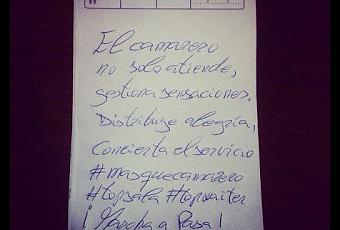 El camarero
no solo atiende,
gestiona sensaciones.
Distribuye alegría,
Convierte el servicio
#masquecamarero
#topsala #topwaiter
¡Marcha a Pasa!